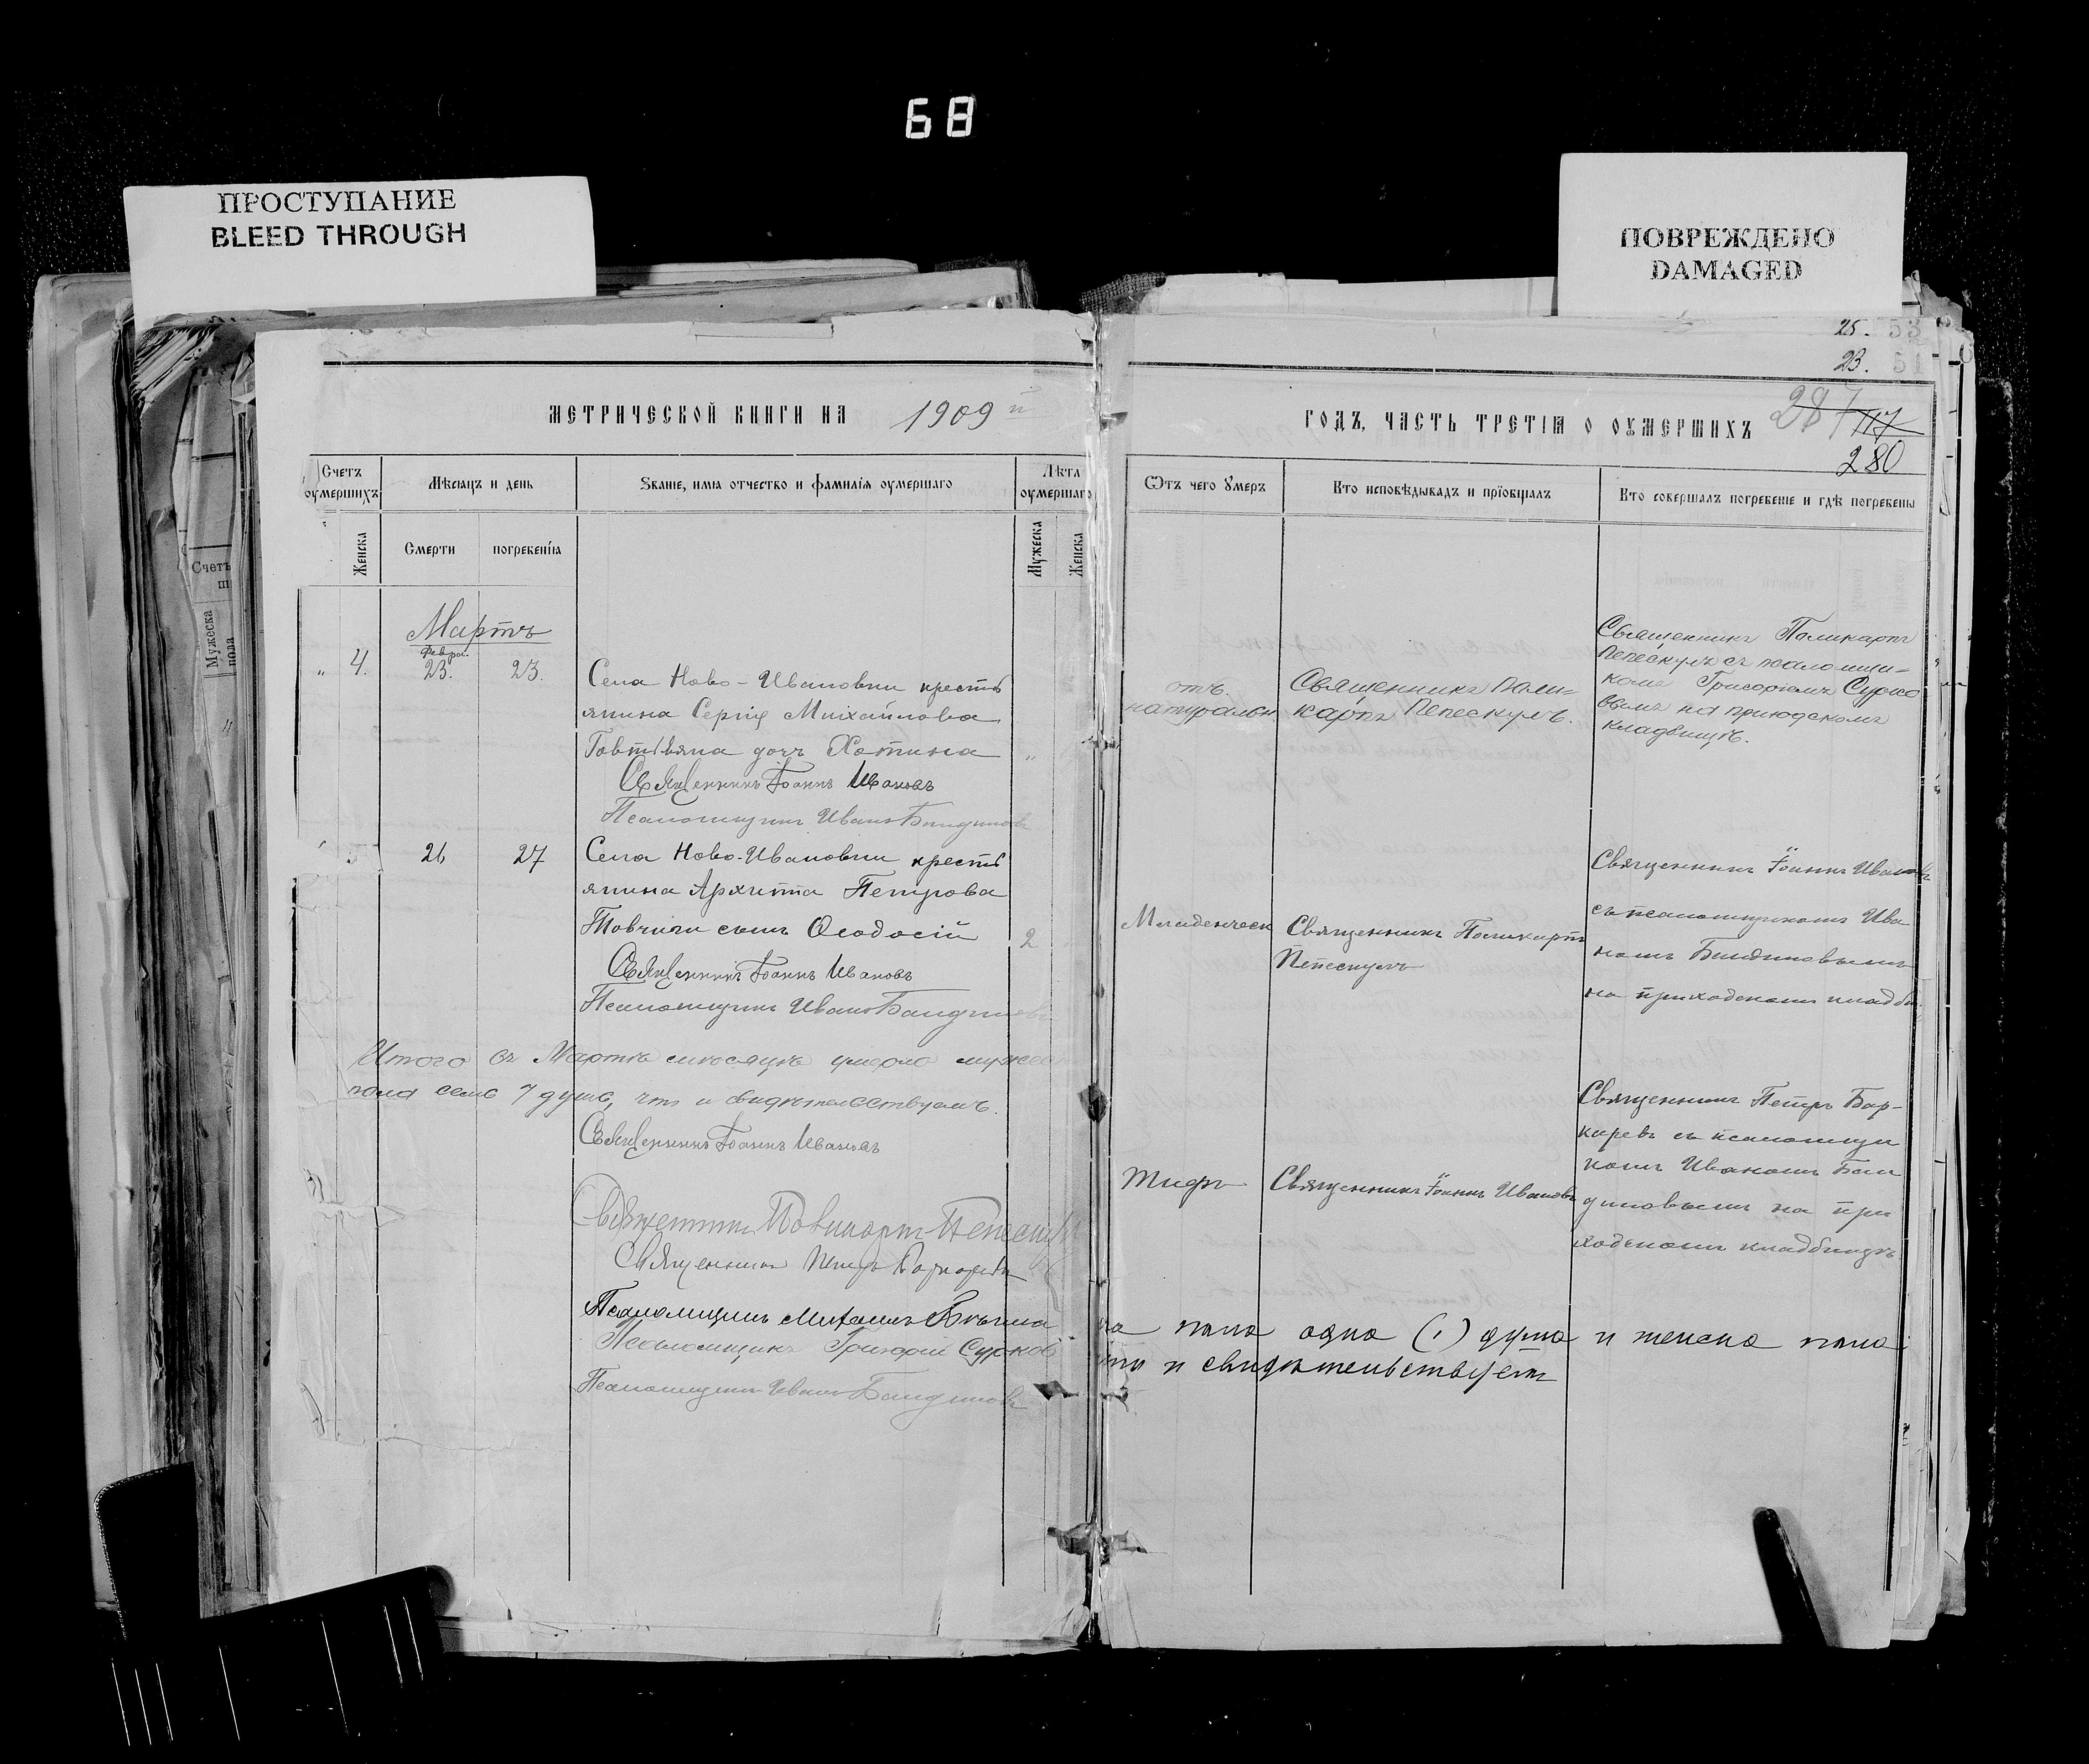 68
ПРОСТУПАНИЕ
BLEED THROUGH
ПОВРЕЖДЕНО
DAMAGED
25. 53
23. 51
МЕТРИЧЕСКОЙ КНИГИ НА 1909 й
ГОДЪ, ЧАСТЬ ТРЕТІЯ О ОУМЕРШИХЪ 287 117
280
Счетъ оумершихъ
Мѣсяцъ и день
Званіе, имя отчество и фамилія оумершаго
Лѣта оумершаго
Женска
Смерти
погребенія
Мужеска
Женска
Счетъ
Мужеска пола
Мартъ
Февра.
„ 4. 23. 23.
Села Ново-Ивановки кресть
янина Сергія Михайлова
дочь
Священникъ Іоаннъ Ивановъ
Псаломщикъ Иванъ
5 26 27
Села Ново-Ивановки кресть
янина Архиппа Петрова
Товчиги сынъ Ѳеодосій
2
Священникъ Іоаннъ Ивановъ
Псаломщикъ Иванъ
Итого въ Мартѣ мѣсяцѣ умерло мужес
пола семь 7 душъ, что и свидѣтельствуемъ.
Священникъ Іоаннъ Ивановъ
Священникъ Поликарпъ Пепескулъ
Священникъ Петръ
Псаломщикъ Михаилъ
Псаломщикъ Григорій Сурков
Псаломщикъ Иванъ
Отъ чего умеръ
Кто исповѣдывалъ и пріобщалъ
Кто совершалъ погребеніе и гдѣ погребены
отъ.
натуральн
Священникъ Поли-
карпъ Пепескулъ.
Священникъ Поликарпъ
Пепескулъ съ псаломщи-
комъ Григоріемъ Сурко
вымъ на приходскомъ
кладбищѣ.
Младенческ
Священникъ Поликарпъ
Пепескулъ
Священникъ Іоаннъ Ивановъ
съ псаломщикомъ Ива
номъ
на приходскомъ кладби
Тифъ
Священникъ Іоаннъ Ивановъ
Священникъ Петръ Бар-
каревъ съ псаломщи
комъ Иваномъ
диновымъ на при
ходскомъ кладбищѣ
на пола одна (1) душа и женска пола
что и свидѣтельствуетъ